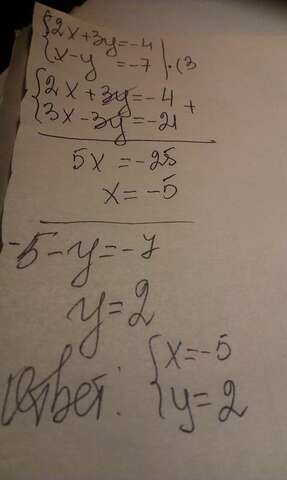 {2x+3y=-4
{x-y =-7 | ·(3
{2x+3y=-4 +
{3x-3y=-21
5x =-25
x=-5
-5-y=-7
y=2
Ответ: {x=-5
{y=2